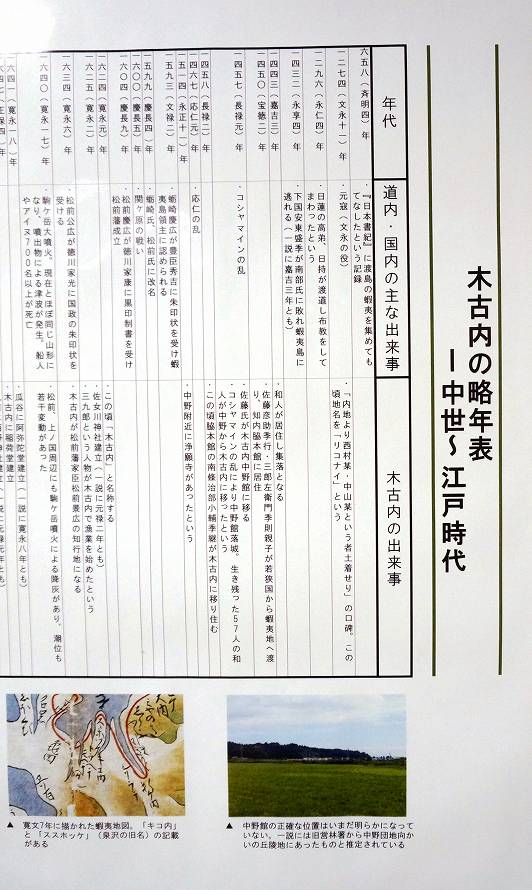 木古内の略年表
ー中世～江戸時代
年代
道内・国内の主な出来事
木古内の出来事
六五八（斉明四）年
・『日本書紀』に渡島の蝦夷を集めても
てなしたという記録
一二七四（文永十一）年
・元寇（文永の役）
「内地より西村某・中山某という者土着せり」の口碑。この
頃地名を「リコナイ」という
一二九六（永仁四）年
・日蓮の高弟、日持が渡道し布教をして
まわったという
一四三二（永享四）年
・下国安東盛季が南部氏に敗れ蝦夷島に
逃れる（一説に嘉吉三年とも）
一四四三（嘉吉三）年
・和人が居住し集落となる
一四五〇（宝徳二）年
・佐藤彦助季行・三郎左衛門季則親子が若狭国から蝦夷地へ渡
り、知内脇本館に居住
・佐藤氏が木古内中野館に移る
一四五七（長禄元）年
・コシャマインの乱
・コシャマインの乱により中野館落城。生き残った57人の和
人が中野から木古内に移ったという
一四五八（長禄二）年
・この頃脇本館の南條治部小輔季継が木古内に移り住む
一四六七（応仁元）年
・応仁の乱
一五一四（永正十一）年
・中野附近に浄願寺があったという
一五九三（文禄二）年
・蛎崎慶広が豊臣秀吉に朱印状を受け蝦
夷島領主に認められる
一五九九（慶長四）年
・蛎崎氏、松前氏に改名
一六〇〇（慶長五）年
・関ヶ原の戦い
一六〇四（慶長九）年
・松前慶広が徳川家康に黒印制書を受け
松前藩成立
一六二四（寛永元）年
・この頃「木古内」と名称する
一六二五（寛永二）年
・佐女川神社建つ（一説に元禄二年とも）
・三九郎という人物が木古内で漁業を始めたという
・木古内が松前藩家臣松前景広の知行地になる
一六三四（寛永六）年
・松前公広が徳川家光に国政の朱印状を
受ける
一六四〇（寛永一七）年
・駒ヶ岳大噴火。現在とほぼ同じ山形に
なり、噴出物による津波が発生。船人
やアイヌ700名以上が死亡
・松前、上ノ国周辺にも駒ヶ岳噴火による降灰があり、潮位も
若干変動があった
一六四一（寛永一八）年
・瓜谷に阿弥陀堂建立（一説に寛永八年とも）
・木古内に稲荷堂建立
▲ 中野館の正確な位置はいまだ明らかになって
いない。一説には旧営林署から中野団地向か
いの丘陵地にあったものと推定されている
▲ 寛文7年に描かれた蝦夷地図。「キコ内」
と「ススホッケ」（泉沢の旧名）の記載
がある